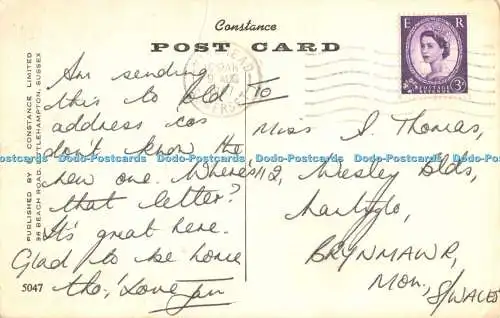 Constance
POST CARD
PUBLISHED BY CONSTANCE LIMITED
38 BEACH ROAD, LITTLEHAMPTON, SUSSEX
E R
POSTAGE REVENUE
3D
9 AUG
Am sending
this to old
address cos
don't know the
new one. Where's
that letter?
It's great here.
Glad to be home
tho,' Love Jan
To
Miss S. Thomas,
112, Wesley Blds,
Nantyglo,
BRYNMAWR,
Mon,
S/WALES
Dodo-Postcards Dodo-Postcards Dodo-Postcards Dodo-Postcards Dodo-Postcards Dodo-Postcards
5047